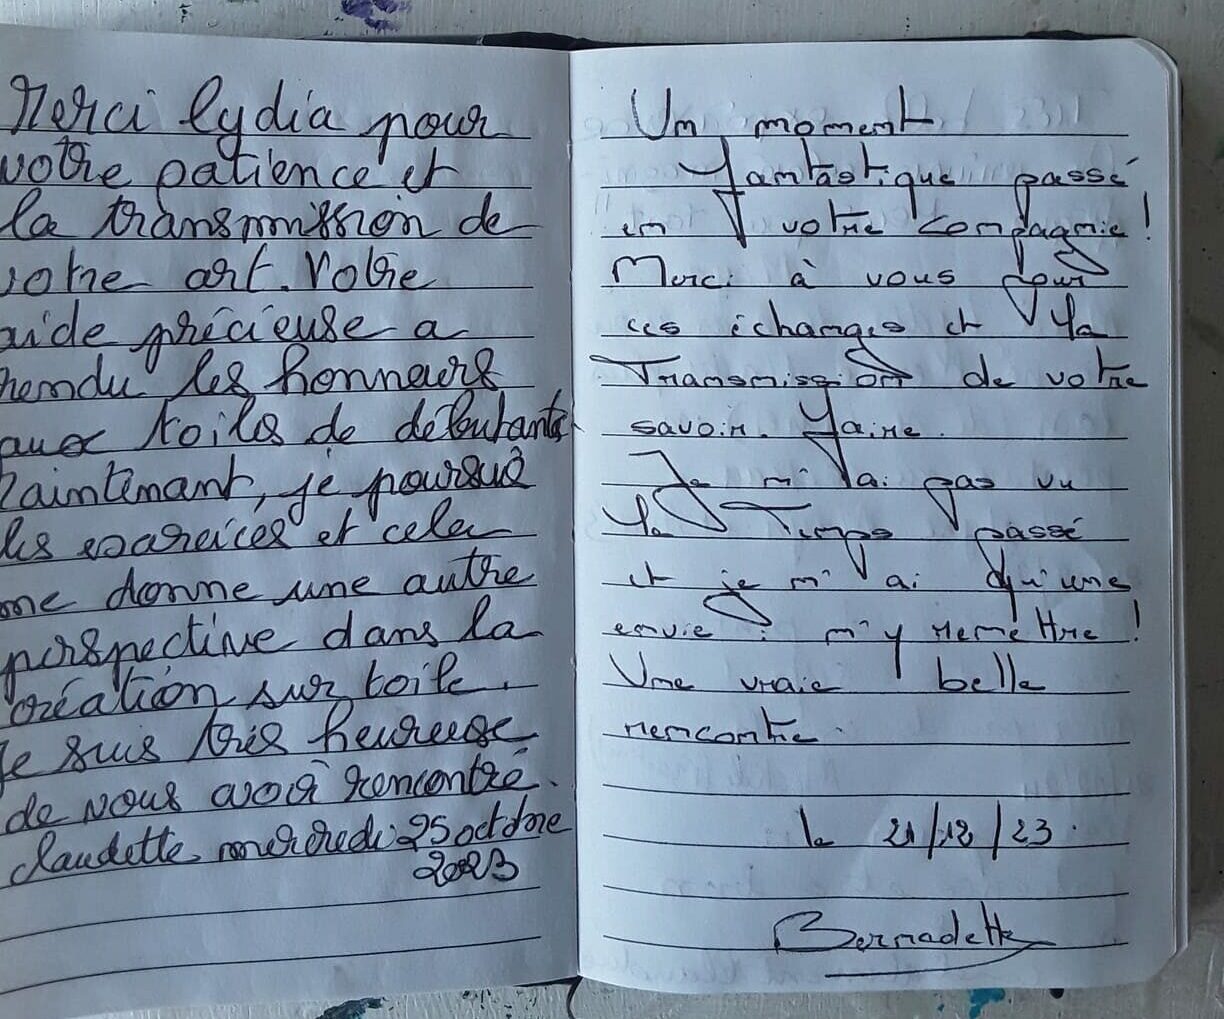 Merci lydia pour
votre patience et
la transmission de
votre art. Votre
aide précieuse a
rendu les honneurs
aux toiles de débutants
Maintenant, je poursuis
les exercices et cela
me donne une autre
perspective dans la
création sur toile.
Je suis très heureuse
de vous avoir rencontré.
Claudette mercredi 25 octobre
2023
Un moment
fantastique passé
en votre compagnie!
Merci à vous pour
ces échanges et la
Transmission de votre
savoir. faire.
Je n'ai pas vu
le Temps passé
et je n'ai qu'une
envie : m'y remettre!
Une vraie belle
rencontre.
le 21/12/23.
Bernadette